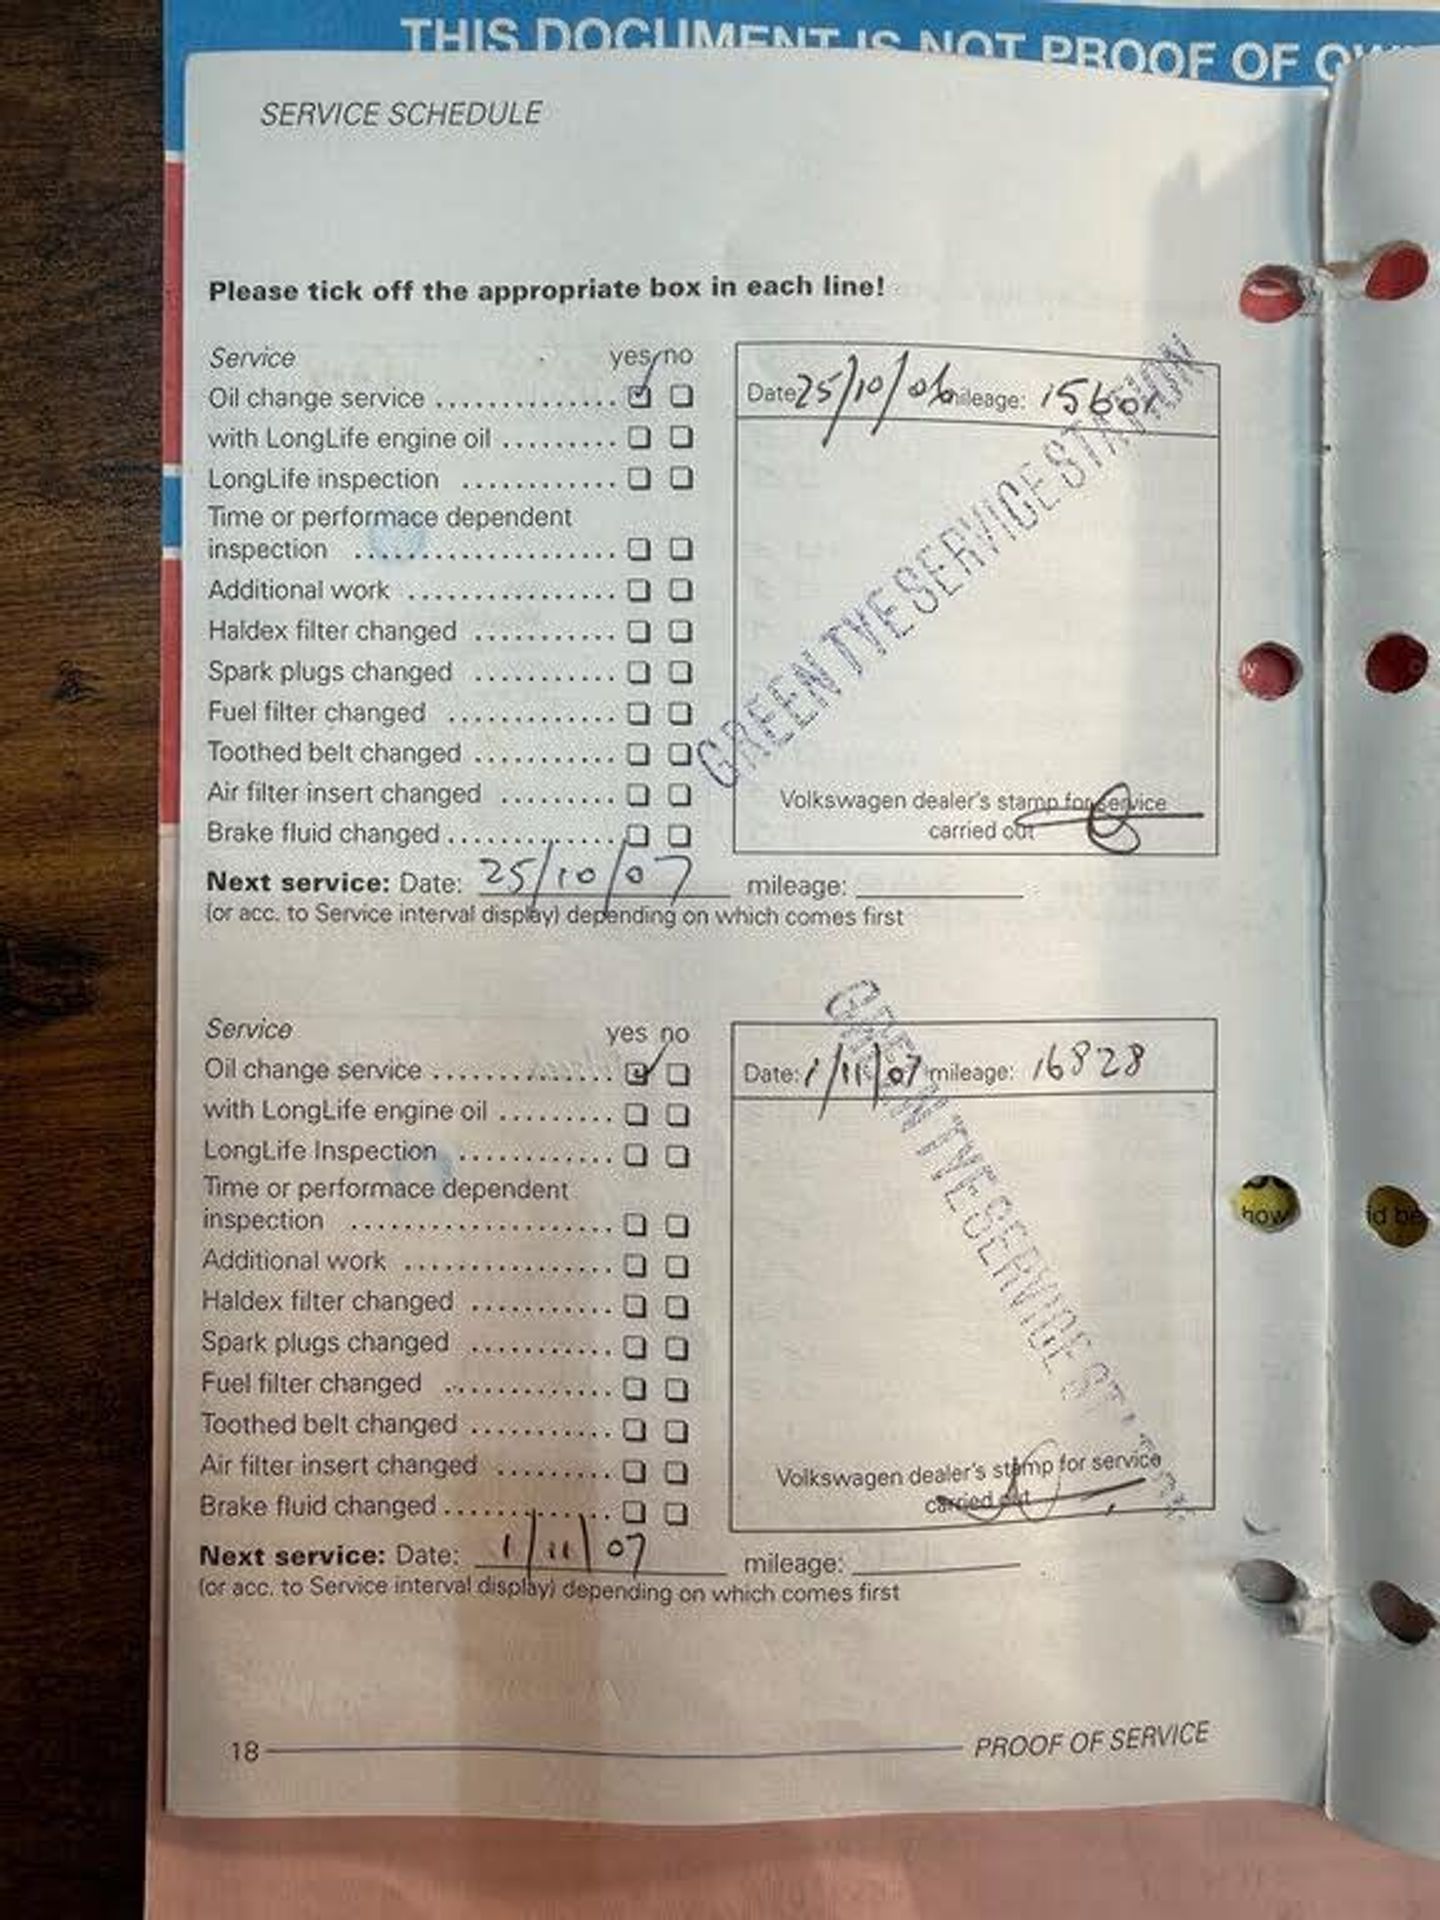 THIS DOCUMENT IS NOT PROOF OF
SERVICE SCHEDULE
Please tick off the appropriate box in each line!
Service yes no
Oil change service ..............
with LongLife engine oil .........
LongLife inspection ............
Time or performace dependent
inspection ....................
Additional work ................
Haldex filter changed ...........
Spark plugs changed ...........
Fuel filter changed .............
Toothed belt changed ...........
Air filter insert changed .........
Brake fluid changed .............
Date 25/10/06 mileage:
GREEN TYE SERVICE STATION
Volkswagen dealer's stamp for service
carried out
Next service: Date: 25/10/07 mileage:
(or acc. to Service interval display) depending on which comes first
Service yes no
Oil change service ..............
with LongLife engine oil .........
LongLife Inspection ............
Time or performace dependent
inspection ....................
Additional work ................
Haldex filter changed ...........
Spark plugs changed ...........
Fuel filter changed .............
Toothed belt changed ...........
Air filter insert changed .........
Brake fluid changed .............
Date: 1/11/07 mileage: 16828
GREEN TYE SERVICE STATION
Volkswagen dealer's stamp for service
carried out
Next service: Date: 1/11/07 mileage:
(or acc. to Service interval display) depending on which comes first
18 PROOF OF SERVICE
how